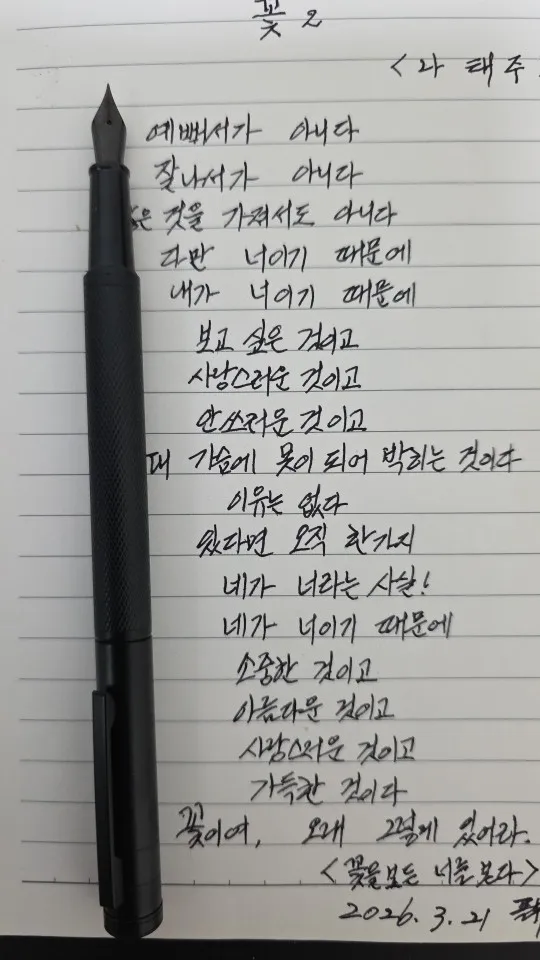 꽃 2
<나 태 주
예뻐서가 아니다
잘나서가 아니다
은 것을 가져서도 아니다
다만 너이기 때문에
내가 너이기 때문에
보고 싶은 것이고
사랑스러운 것이고
안쓰러운 것이고
가슴에 못이 되어 박히는 것이다
이유는 없다
있다면 오직 한가지
네가 너라는 사실!
네가 너이기 때문에
소중한 것이고
아름다운 것이고
사랑스러운 것이고
가득한 것이다
꽃이여, 오래 그렇게 있어라.
<꽃을 보듯 너를 본다>
2026. 3. 21